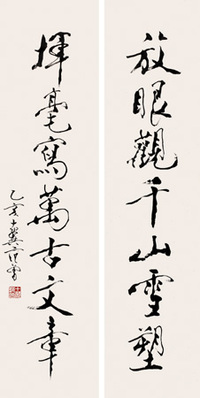 放眼觀千山雪塑
揮毫寫萬古文章
乙亥 十翼 范曾